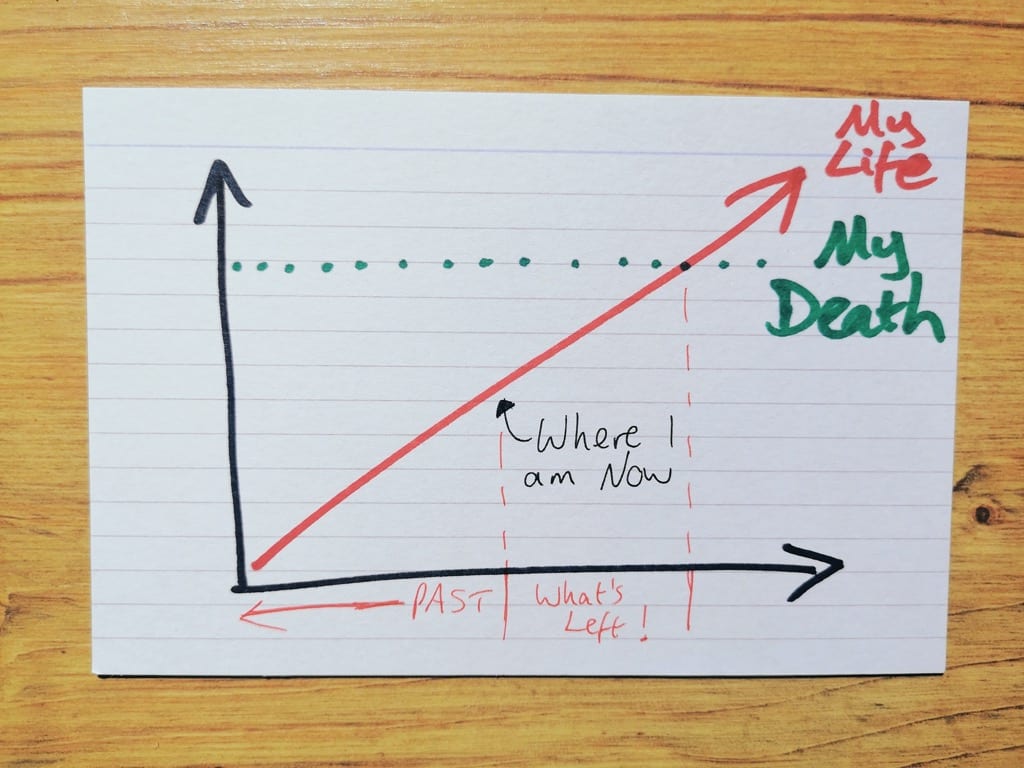 My
Life
My
Death
Where I
am Now
PAST
What's
Left!